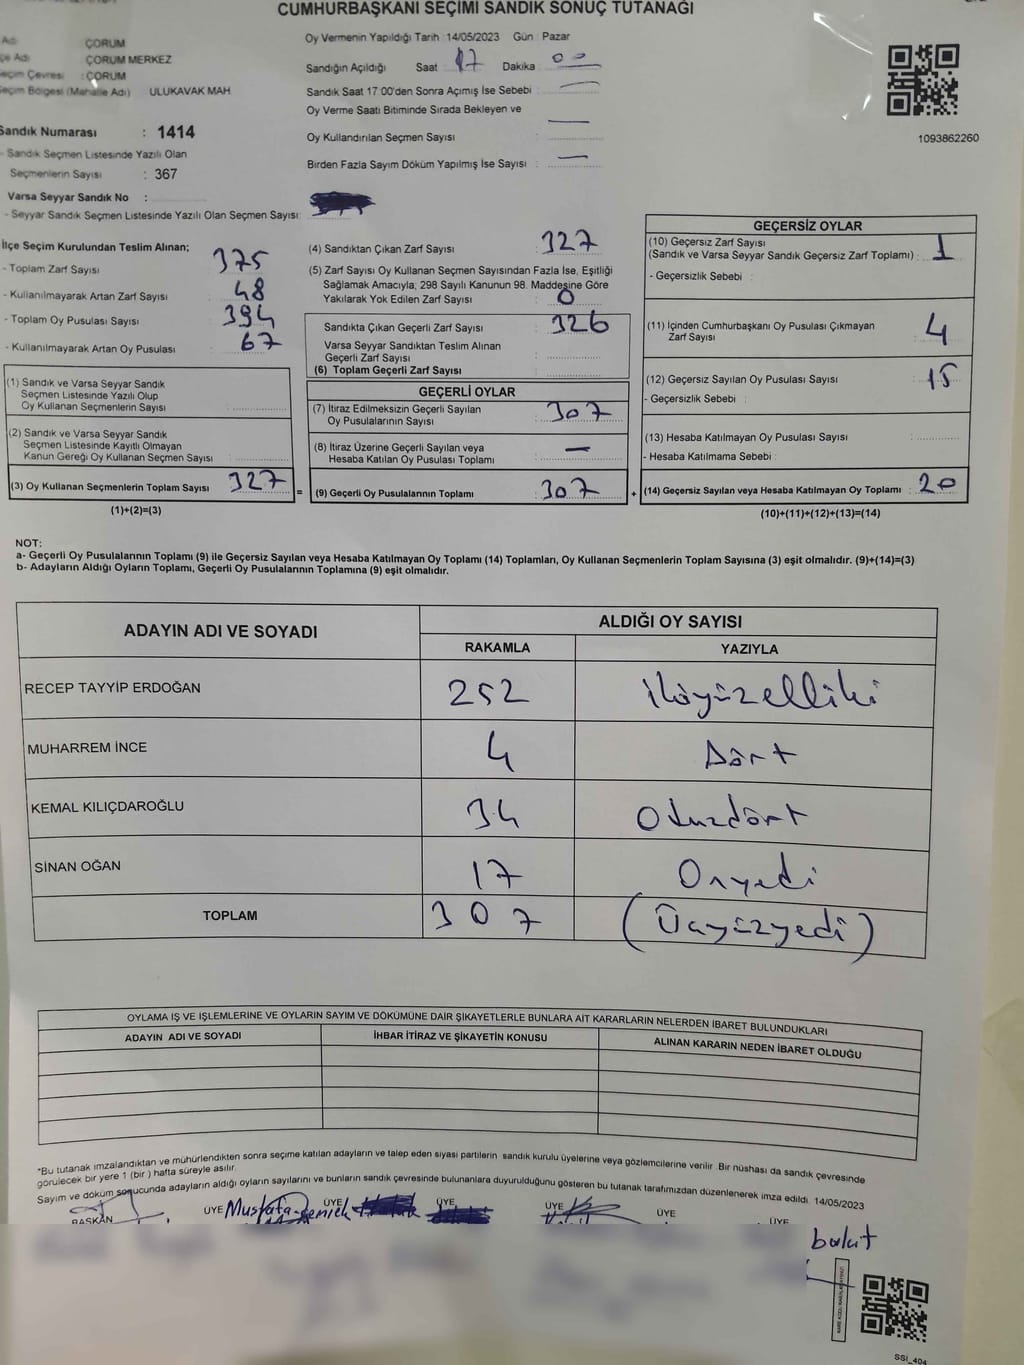 CUMHURBAŞKANI SEÇİMİ SANDIK SONUÇ TUTANAĞI
Adı ÇORUM
Adı ÇORUM MERKEZ
Seçim Çevresi : ÇORUM
Seçim Bölgesi (Mahalle Adı) ULUKAVAK MAH
Sandık Numarası : 1414
- Sandık Seçmen Listesinde Yazılı Olan
Seçmenlerin Sayısı : 367
Varsa Seyyar Sandık No :
- Seyyar Sandık Seçmen Listesinde Yazılı Olan Seçmen Sayısı:
Oy Vermenin Yapıldığı Tarih :14/05/2023 Gün Pazar
Sandığın Açıldığı Saat 17 Dakika 00
Sandık Saat 17:00'den Sonra Açımış İse Sebebi : —
Oy Verme Saati Bitiminde Sırada Bekleyen ve
Oy Kullandırılan Seçmen Sayısı : —
Birden Fazla Sayım Döküm Yapılmış İse Sayısı : —
1093862260
İlçe Seçim Kurulundan Teslim Alınan;
- Toplam Zarf Sayısı 375
- Kullanılmayarak Artan Zarf Sayısı 48
- Toplam Oy Pusulası Sayısı 394
- Kullanılmayarak Artan Oy Pusulası 67
(1) Sandık ve Varsa Seyyar Sandık
Seçmen Listesinde Yazılı Olup
Oy Kullanan Seçmenlerin Sayısı :
(2) Sandık ve Varsa Seyyar Sandık
Seçmen Listesinde Kayıtlı Olmayan
Kanun Gereği Oy Kullanan Seçmen Sayısı :
(3) Oy Kullanan Seçmenlerin Toplam Sayısı : 327
(1)+(2)=(3)
(4) Sandıktan Çıkan Zarf Sayısı : 327
(5) Zarf Sayısı Oy Kullanan Seçmen Sayısından Fazla İse, Eşitliği
Sağlamak Amacıyla; 298 Sayılı Kanunun 98. Maddesine Göre
Yakılarak Yok Edilen Zarf Sayısı : 0
Sandıkta Çıkan Geçerli Zarf Sayısı : 326
Varsa Seyyar Sandıktan Teslim Alınan
Geçerli Zarf Sayısı :
(6) Toplam Geçerli Zarf Sayısı :
GEÇERLİ OYLAR
(7) İtiraz Edilmeksizin Geçerli Sayılan
Oy Pusulalarının Sayısı : 307
(8) İtiraz Üzerine Geçerli Sayılan veya
Hesaba Katılan Oy Pusulası Toplamı : —
= (9) Geçerli Oy Pusulalarının Toplamı : 307
GEÇERSİZ OYLAR
(10) Geçersiz Zarf Sayısı
(Sandık ve Varsa Seyyar Sandık Geçersiz Zarf Toplamı) : 1
- Geçersizlik Sebebi :
(11) İçinden Cumhurbaşkanı Oy Pusulası Çıkmayan
Zarf Sayısı : 4
(12) Geçersiz Sayılan Oy Pusulası Sayısı : 15
- Geçersizlik Sebebi :
(13) Hesaba Katılmayan Oy Pusulası Sayısı :
- Hesaba Katılmama Sebebi :
+ (14) Geçersiz Sayılan veya Hesaba Katılmayan Oy Toplamı : 20
(10)+(11)+(12)+(13)=(14)
NOT:
a- Geçerli Oy Pusulalarının Toplamı (9) ile Geçersiz Sayılan veya Hesaba Katılmayan Oy Toplamı (14) Toplamları, Oy Kullanan Seçmenlerin Toplam Sayısına (3) eşit olmalıdır. (9)+(14)=(3)
b- Adayların Aldığı Oyların Toplamı, Geçerli Oy Pusulalarının Toplamına (9) eşit olmalıdır.
ADAYIN ADI VE SOYADI ALDIĞI OY SAYISI
RAKAMLA YAZIYLA
RECEP TAYYİP ERDOĞAN 252 ikiyüzelliki
MUHARREM İNCE 4 Dört
KEMAL KILIÇDAROĞLU 34 Otuzdört
SİNAN OĞAN 17 Onyedi
TOPLAM 307 (Üçyüzyedi)
OYLAMA İŞ VE İŞLEMLERİNE VE OYLARIN SAYIM VE DÖKÜMÜNE DAİR ŞİKAYETLERLE BUNLARA AİT KARARLARIN NELERDEN İBARET BULUNDUKLARI
ADAYIN ADI VE SOYADI İHBAR İTİRAZ VE ŞİKAYETİN KONUSU ALINAN KARARIN NEDEN İBARET OLDUĞU
*Bu tutanak imzalandıktan ve mühürlendikten sonra seçime katılan adayların ve talep eden siyasi partilerin sandık kurulu üyelerine veya gözlemcilerine verilir. Bir nüshası da sandık çevresinde
görülecek bir yere 1 (bir ) hafta süreyle asılır.
Sayım ve döküm sonucunda adayların aldığı oyların sayılarını ve bunların sandık çevresinde bulunanlara duyurulduğunu gösteren bu tutanak tarafımızdan düzenlenerek imza edildi. 14/05/2023
BAŞKAN ÜYE Mustafa ÜYE ÜYE ÜYE ÜYE ÜYE
bulut
SSİ_404